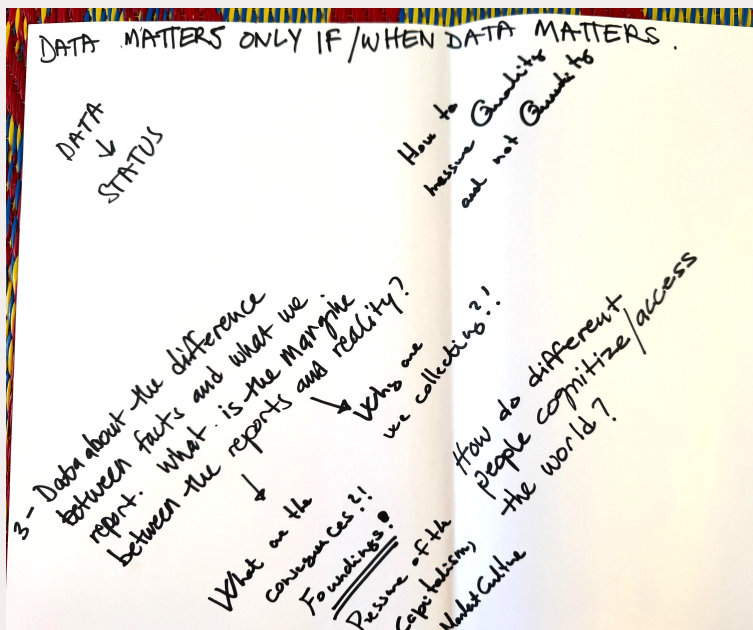 DATA MATTERS ONLY IF/WHEN DATA MATTERS.
DATA
↓
STATUS
How to
measure Quality
and not Quantity
3- Data about the difference
between facts and what we
report. What is the Margine
between the reports and reality?
Who are
we collecting?!
What are the
consequences?!
Foundings!
Pressure of the
Capitalism,
Market Culture
How do different
people cognitize/access
the world?